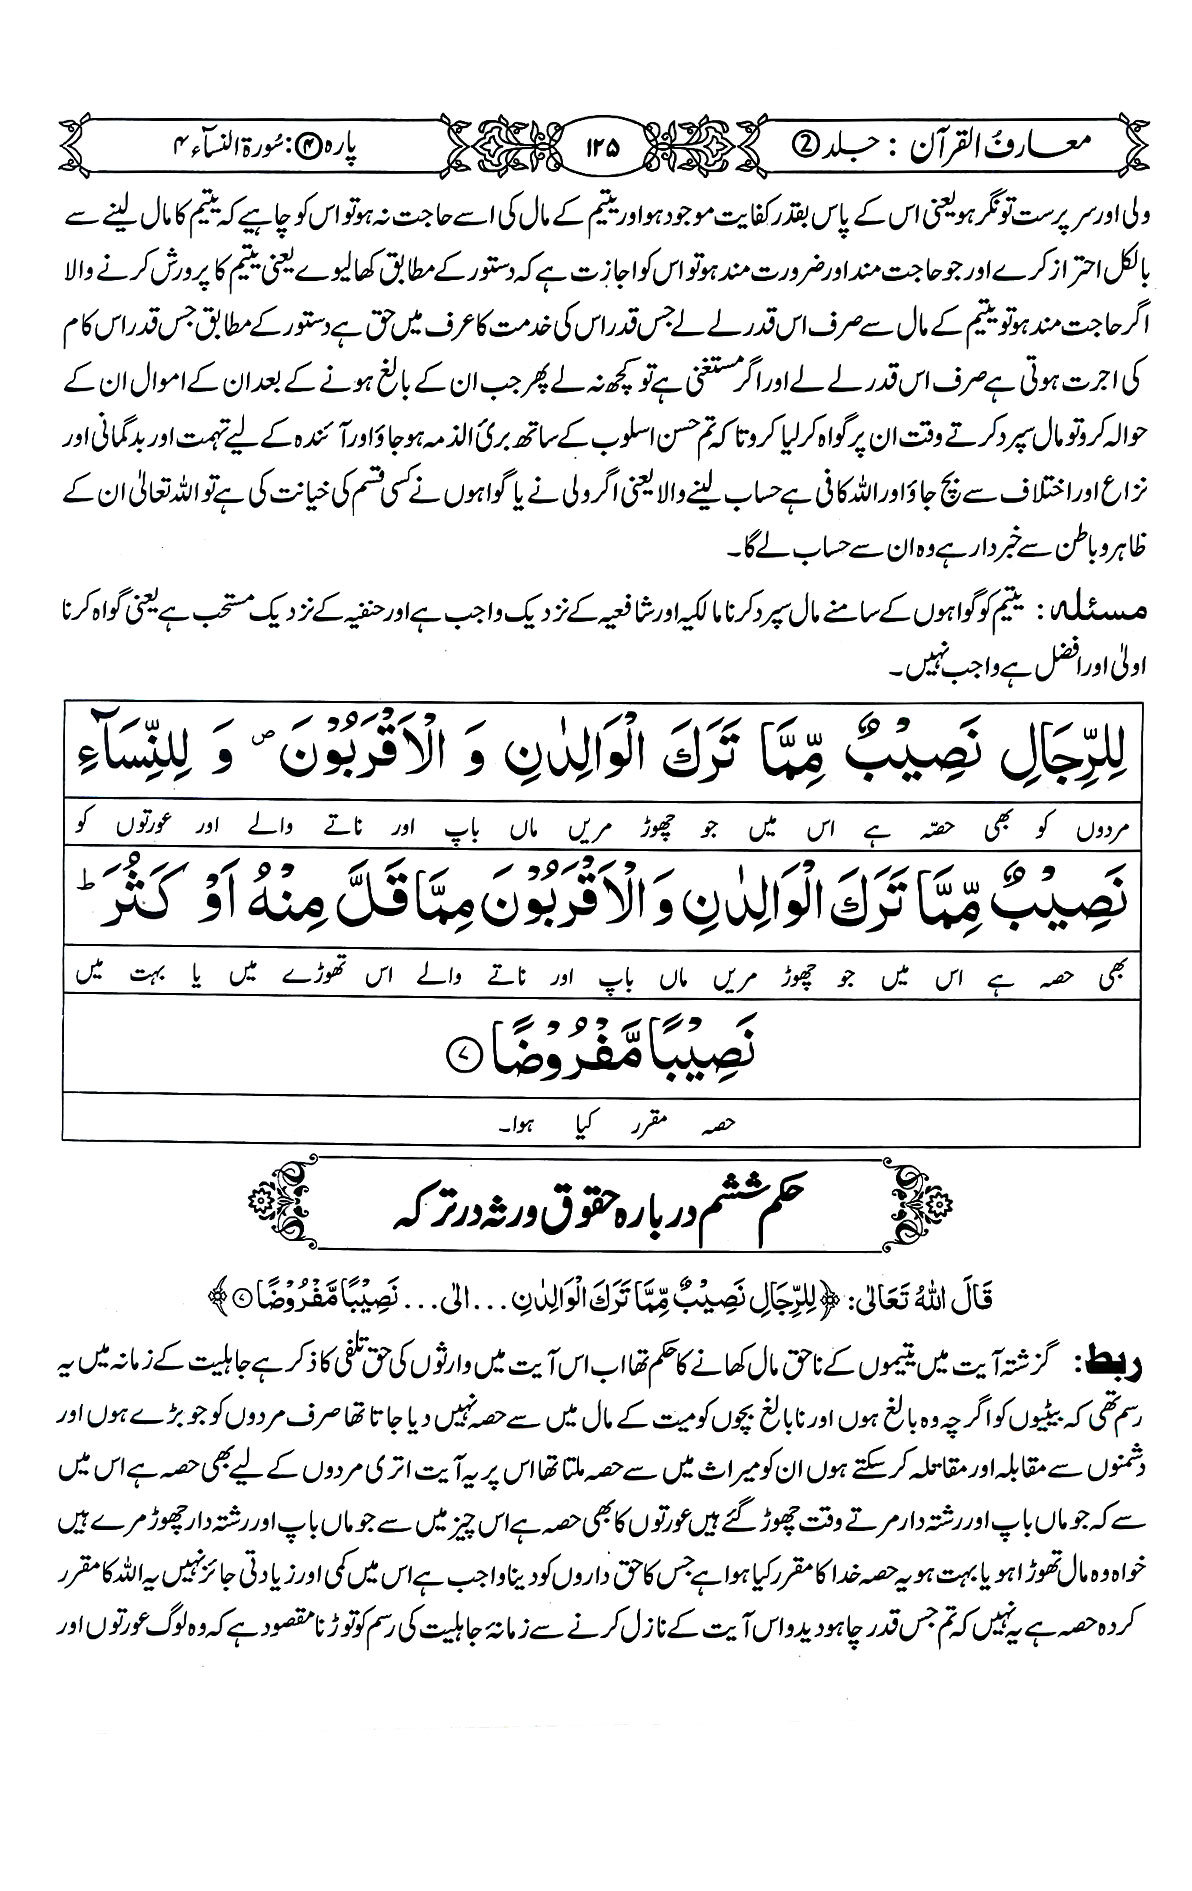 معارفُ القرآن : جلد ②
۱۲۵
پارہ ④: سُورۃ النسآء ۴
ولی اور سرپرست تونگر ہو یعنی اس کے پاس بقدر کفایت موجود ہو اور یتیم کے مال کی اسے حاجت نہ ہو تو اس کو چاہیے کہ یتیم کا مال لینے سے
بالکل احتراز کرے اور جو حاجت مند اور ضرورت مند ہو تو اس کو اجازت ہے کہ دستور کے مطابق کھا لیوے یعنی یتیم کا پرورش کرنے والا
اگر حاجت مند ہو تو یتیم کے مال سے صرف اس قدر لے لے جس قدر اس کی خدمت کا عرف میں حق ہے دستور کے مطابق جس قدر اس کام
کی اجرت ہوتی ہے صرف اس قدر لے لے اور اگر مستغنی ہے تو کچھ نہ لے پھر جب ان کے بالغ ہونے کے بعد ان کے اموال ان کے
حوالہ کرو تو مال سپرد کرتے وقت ان پر گواہ کر لیا کرو تا کہ تم حسن اسلوب کے ساتھ بریٔ الذمہ ہو جاؤ اور آئندہ کے لیے تہمت اور بدگمانی اور
نزاع اور اختلاف سے بچ جاؤ اور اللہ کافی ہے حساب لینے والا یعنی اگر ولی نے یا گواہوں نے کسی قسم کی خیانت کی ہے تو اللہ تعالیٰ ان کے
ظاہر و باطن سے خبردار ہے وہ ان سے حساب لے گا۔
مسئلہ: یتیم کو گواہوں کے سامنے مال سپرد کرنا مالکیہ اور شافعیہ کے نزدیک واجب ہے اور حنفیہ کے نزدیک مستحب ہے یعنی گواہ کرنا
اولیٰ اور افضل ہے واجب نہیں۔
لِلرِّجَالِ نَصِيْبٌ مِّمَّا تَرَكَ الْوَالِدٰنِ وَ الْاَقْرَبُوْنَ ۪ وَ لِلنِّسَآءِ
مردوں کو بھی حصّہ ہے اس میں جو چھوڑ مریں ماں باپ اور ناتے والے اور عورتوں کو
نَصِيْبٌ مِّمَّا تَرَكَ الْوَالِدٰنِ وَ الْاَقْرَبُوْنَ مِمَّا قَلَّ مِنْهُ اَوْ كَثُرَ ؕ
بھی حصہ ہے اس میں جو چھوڑ مریں ماں باپ اور ناتے والے اس تھوڑے میں یا بہت میں
نَصِيْبًا مَّفْرُوْضًا ۷
حصہ مقرر کیا ہوا۔
حکم ششم دربارہ حقوق ورثہ در ترکہ
قَالَ اللّٰهُ تَعَالٰی: ﴿لِلرِّجَالِ نَصِيْبٌ مِّمَّا تَرَكَ الْوَالِدٰنِ ... الٰی ... نَصِيْبًا مَّفْرُوْضًا ۷﴾
ربط: گزشتہ آیت میں یتیموں کے ناحق مال کھانے کا حکم تھا اب اس آیت میں وارثوں کی حق تلفی کا ذکر ہے جاہلیت کے زمانہ میں یہ
رسم تھی کہ بیٹیوں کو اگرچہ وہ بالغ ہوں اور نابالغ بچوں کو میت کے مال میں سے حصہ نہیں دیا جاتا تھا صرف مردوں کو جو بڑے ہوں اور
دشمنوں سے مقابلہ اور مقاتلہ کر سکتے ہوں ان کو میراث میں سے حصہ ملتا تھا اس پر یہ آیت اتری مردوں کے لیے بھی حصہ ہے اس میں
سے کہ جو ماں باپ اور رشتہ دار مرتے وقت چھوڑ گئے ہیں عورتوں کا بھی حصہ ہے اس چیز میں سے جو ماں باپ اور رشتہ دار چھوڑ مرے ہیں
خواہ وہ مال تھوڑا ہو یا بہت ہو یہ حصہ خدا کا مقرر کیا ہوا ہے جس کا حق داروں کو دینا واجب ہے اس میں کمی اور زیادتی جائز نہیں یہ اللہ کا مقرر
کردہ حصہ ہے یہ نہیں کہ تم جس قدر چاہو دیدو اس آیت کے نازل کرنے سے زمانۂ جاہلیت کی رسم کو توڑنا مقصود ہے کہ وہ لوگ عورتوں اور